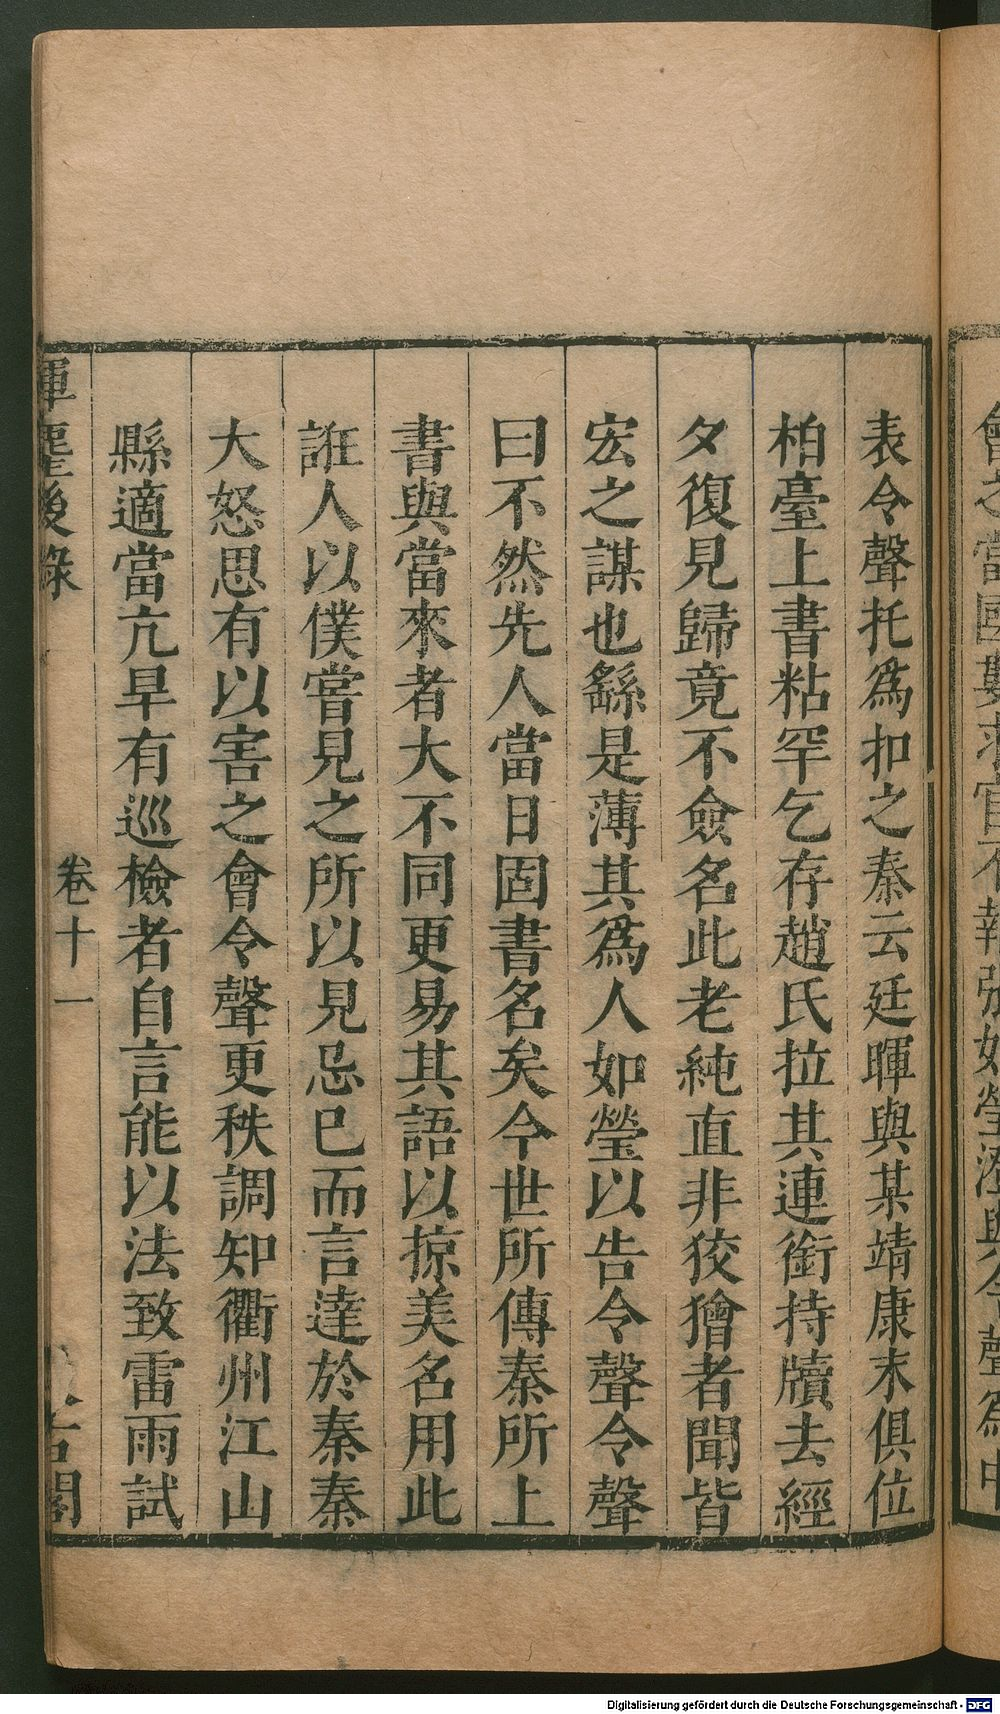 表令聲托爲扣之秦云廷暉與某靖康末俱位
柏臺上書粘罕乞存趙氏拉其連銜持牘去經
夕復見歸竟不僉名此老純直非狡獪者聞皆
宏之謀也繇是薄其爲人如瑩以告令聲令聲
曰不然先人當日固書名矣今世所傳秦所上
書與當來者大不同更易其語以掠美名用此
誑人以僕嘗見之所以見忌已而言達於秦秦
大怒思有以害之會令聲更秩調知衢州江山
縣適當亢旱有巡檢者自言能以法致雷雨試
揮麈後錄 卷十一 古閣
Digitalisierung gefördert durch die Deutsche Forschungsgemeinschaft - DFG